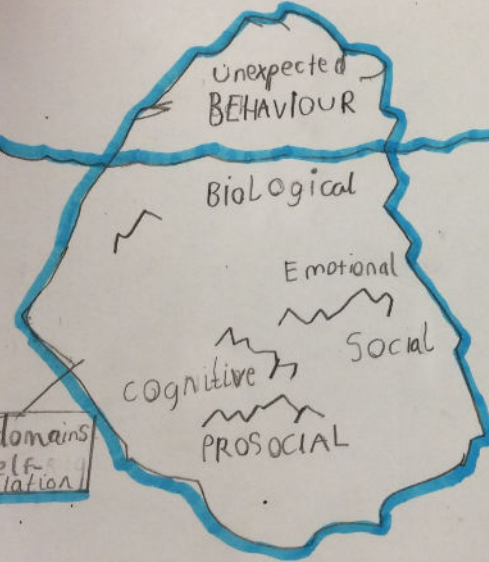 Unexpected
BEHAVIOUR
BioLogical
Emotional
SOCIAL
COgnitive
PROSOCIAL
domains
elf-
lation